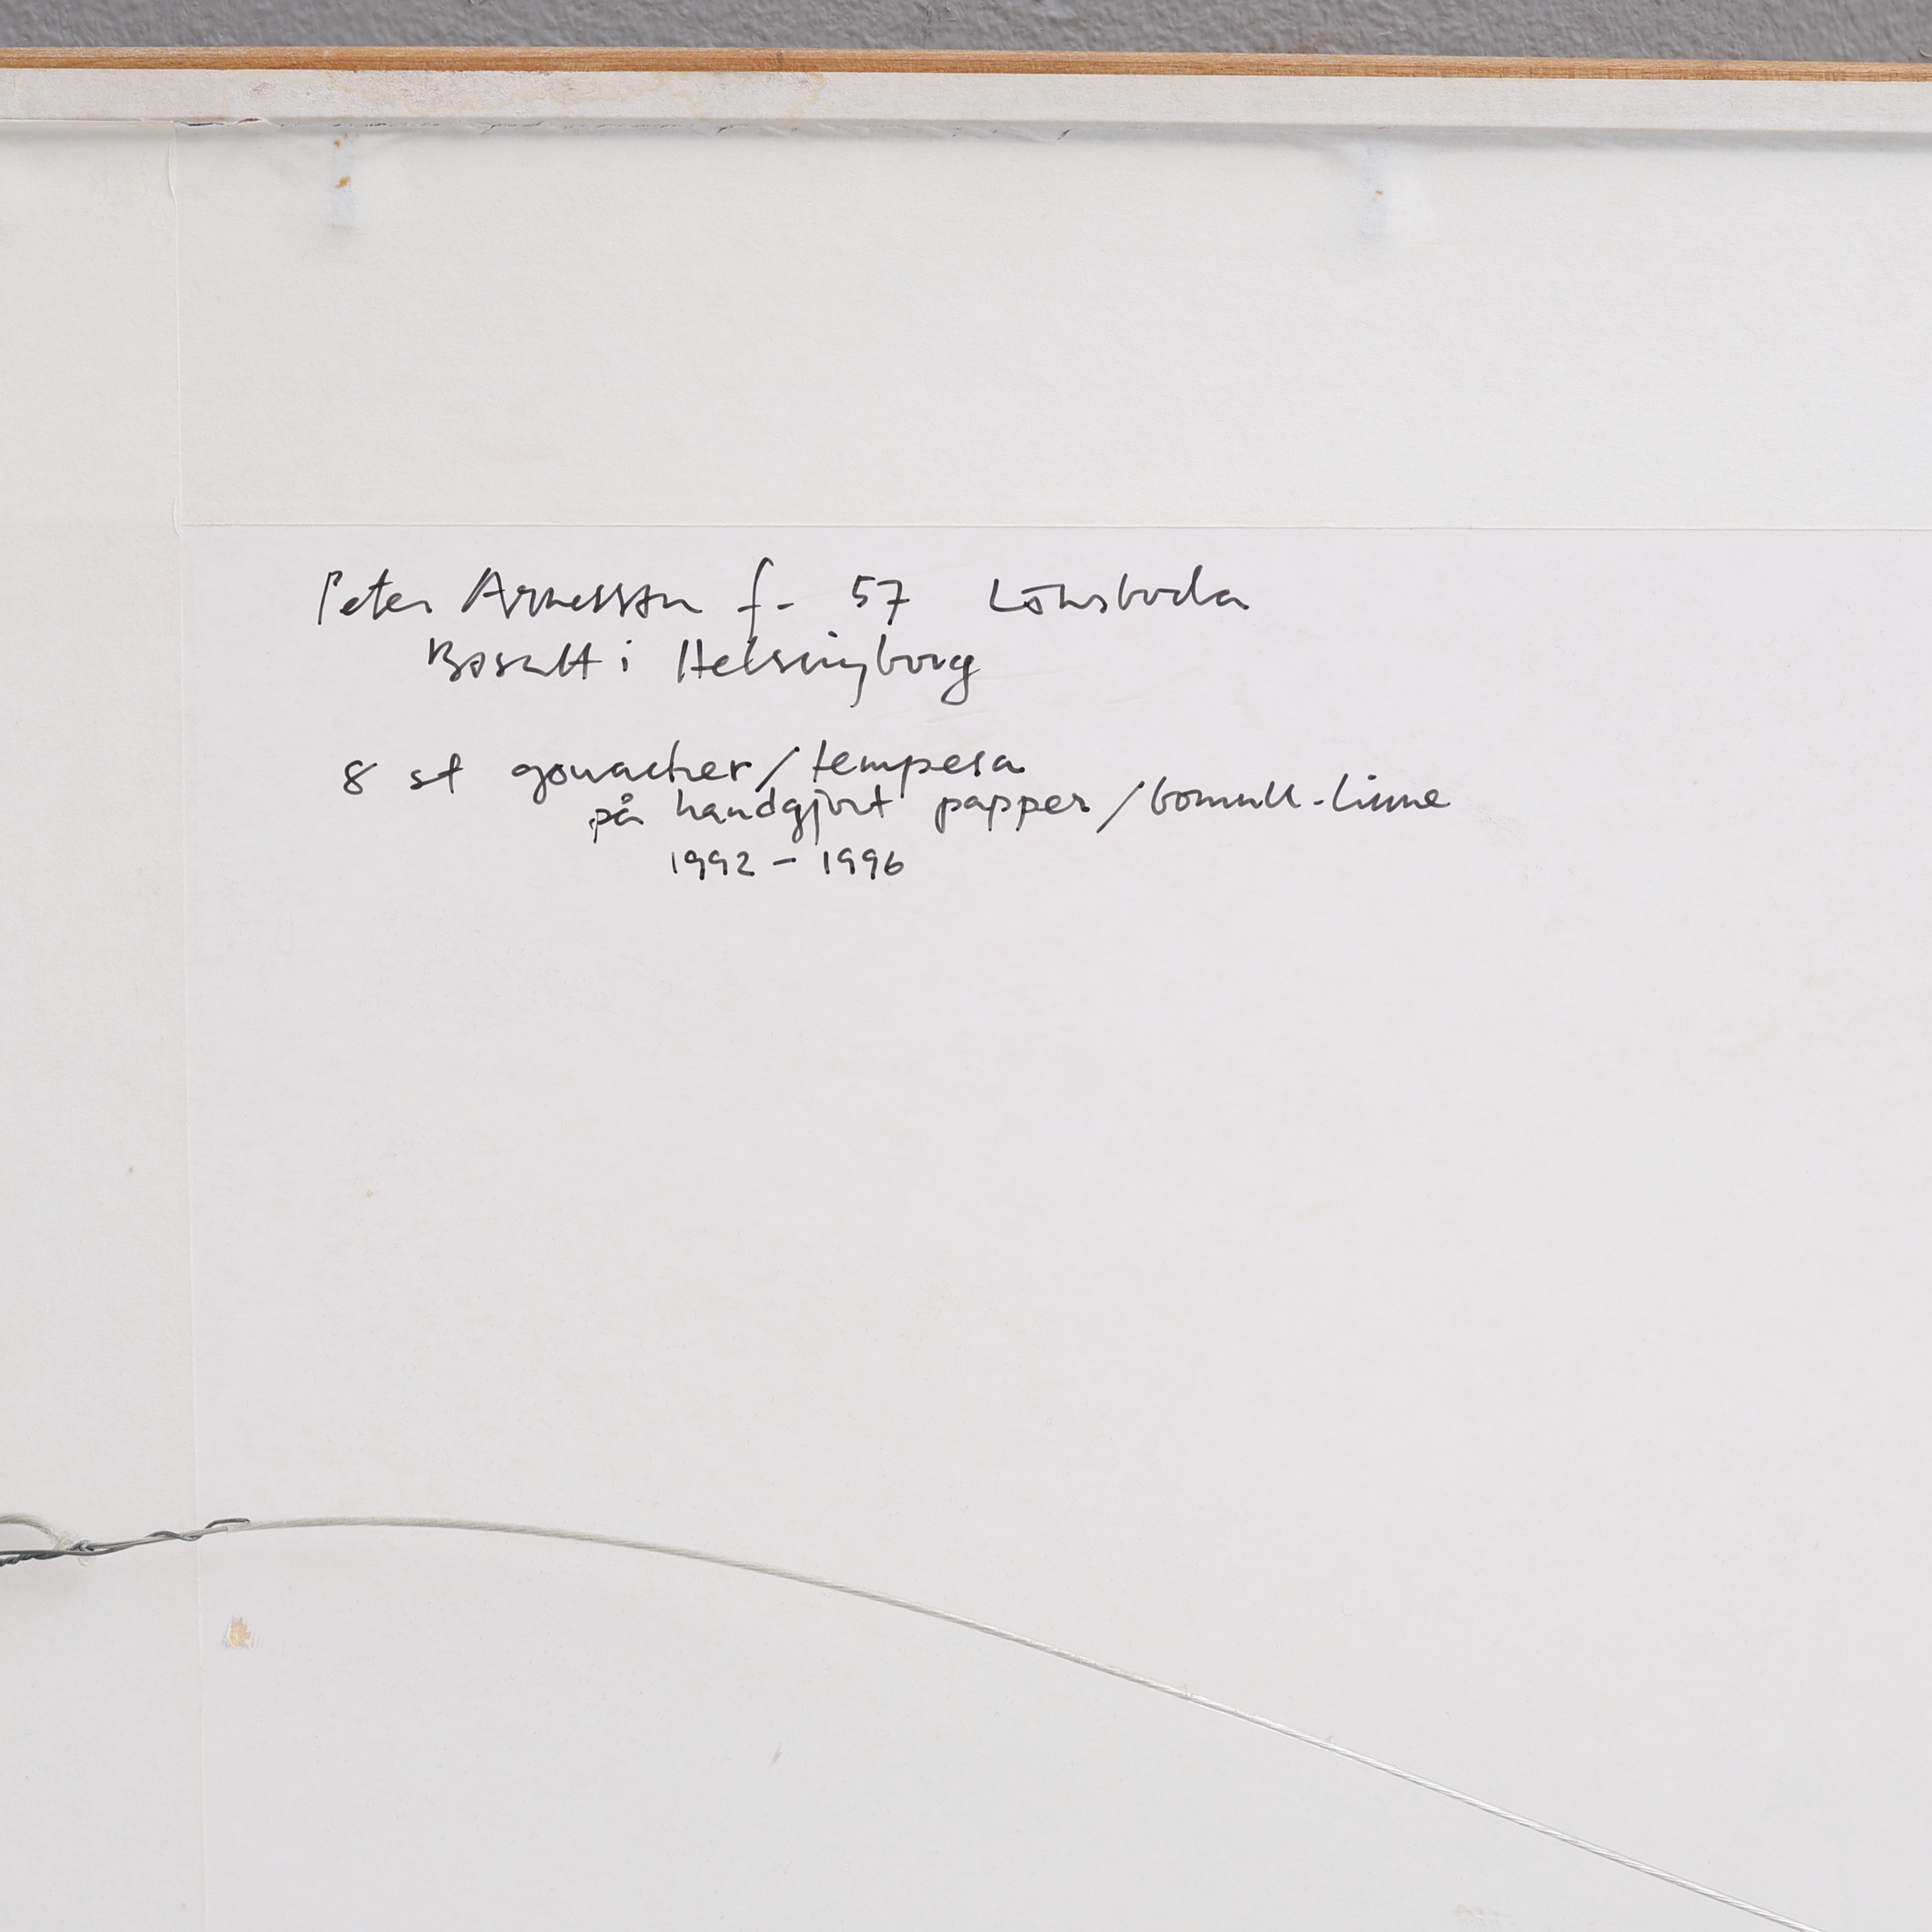 Peter Arnesson f- 57 Lönsboda
Bosatt i Helsingborg
8 st gouacher/tempera
på handgjort papper/bomull-linne
1992 - 1996